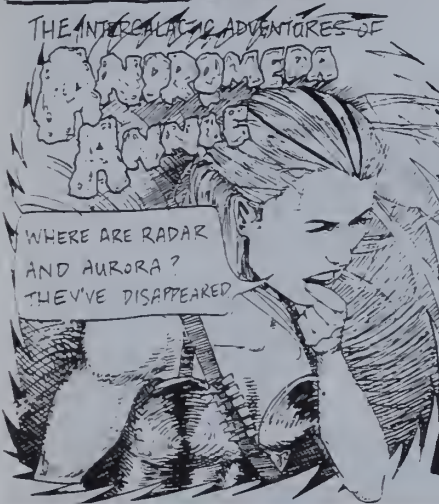 THE INTERGALACTIC ADVENTURES OF
ANDROMEDA
ANNIE
WHERE ARE RADAR
AND AURORA?
THEY'VE DISAPPEARED